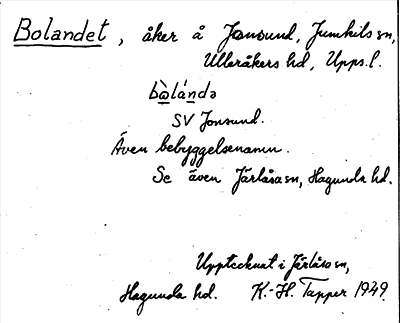 Bolandet, åker å Jonsund, Jumkils sn,
Ulleråkers hd, Upps. l.
bòlándə
SV Jonsund.
Även bebyggelsenamn.
Se även Järlåsa sn, Hagunda hd.
Upptecknat i Järlåsa sn,
Hagunda hd. K.-H. Tapper 1949